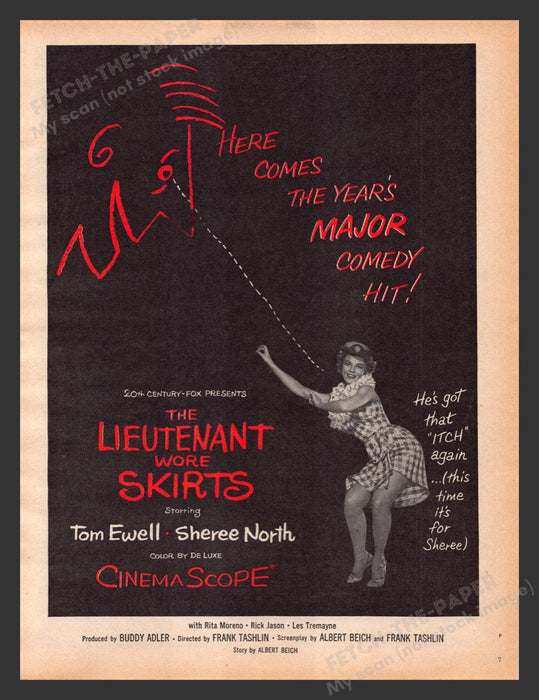 FETCH-THE-PAPER
My scan (not stock image)
HERE
COMES
THE YEAR'S
MAJOR
COMEDY
HIT!
20th CENTURY-FOX PRESENTS
THE
LIEUTENANT
WORE
SKIRTS
starring
Tom Ewell • Sheree North
COLOR BY DE LUXE
CINEMASCOPE
He's got
that
"ITCH"
again
...(this
time
it's
for
Sheree)
with Rita Moreno • Rick Jason • Les Tremayne
Produced by BUDDY ADLER • Directed by FRANK TASHLIN • Screenplay by ALBERT BEICH and FRANK TASHLIN
Story by ALBERT BEICH
P
7
FETCH-THE-PAPER
My scan (not stock image)